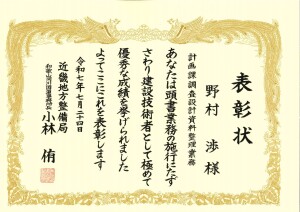 表彰状
計画課調査設計資料整理業務
野村 渉 様
あなたは頭書業務の施行にたず
さわり建設技術者として極めて
優秀な成績を挙げられました
よってここにこれを表彰します
令和七年七月二十四日
近畿地方整備局
和歌山河川国道事務所長
小林 侑